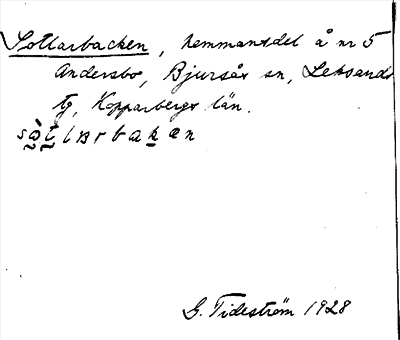 Sottarbacken, hemmansdel å nr 5
Andersbo, Bjursås sn, Leksands
tg, Kopparbergs län.
G. Tideström 1928